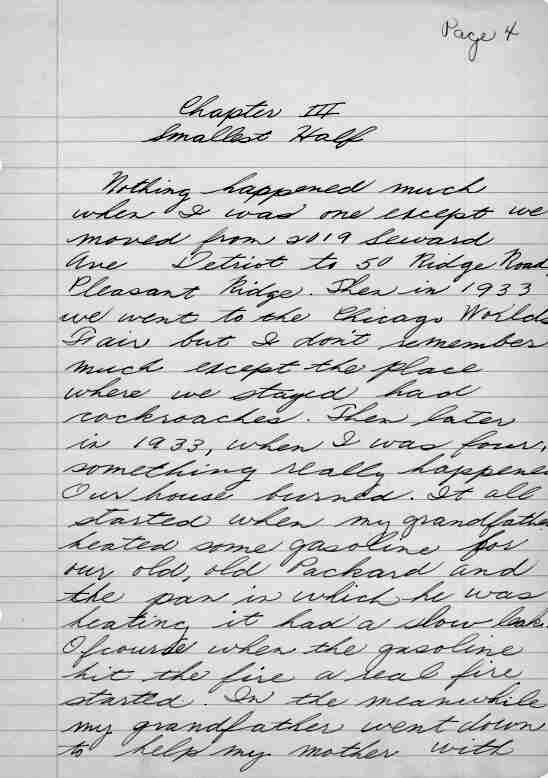 Page 4
Chapter III
Smallest Half
Nothing happened much
when I was one except we
moved from 2019 Seward
Ave Detriot to 50 Ridge Road
Pleasant Ridge. Then in 1933
we went to the Chicago Worlds
Fair but I don't remember
much except the place
where we stayed had
cockroaches. Then later
in 1933, when I was four,
something really happened
Our house burned. It all
started when my grandfather
heated some gasoline for
our old, old Packard and
the pan in which he was
heating it had a slow leak.
Ofcourse when the gasoline
hit the fire a real fire
started. In the meanwhile
my grandfather went down
to help my mother with